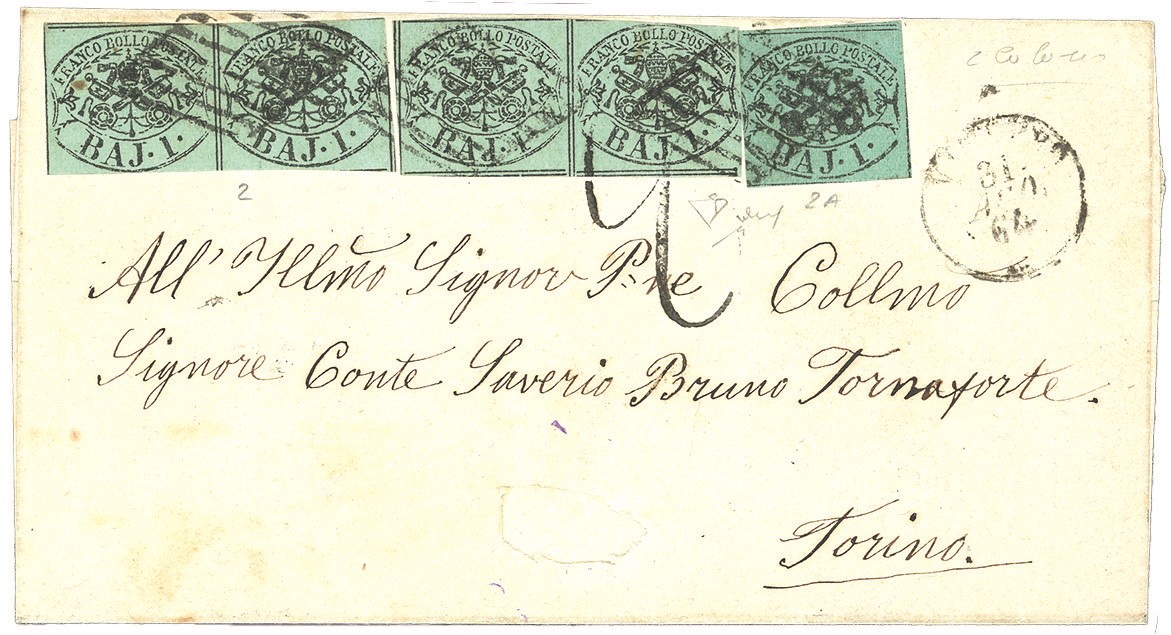 FRANCO BOLLO POSTALE BAJ. 1. FRANCO BOLLO POSTALE BAJ. 1. FRANCO BOLLO POSTALE BAJ. 1. FRANCO BOLLO POSTALE BAJ. 1. FRANCO BOLLO POSTALE BAJ. 1.
2 2A
31
AGO.
64
All' Illm̃o Signor P.ne Collmo
Signore Conte Saverio Bruno Tornaforte.
Torino.